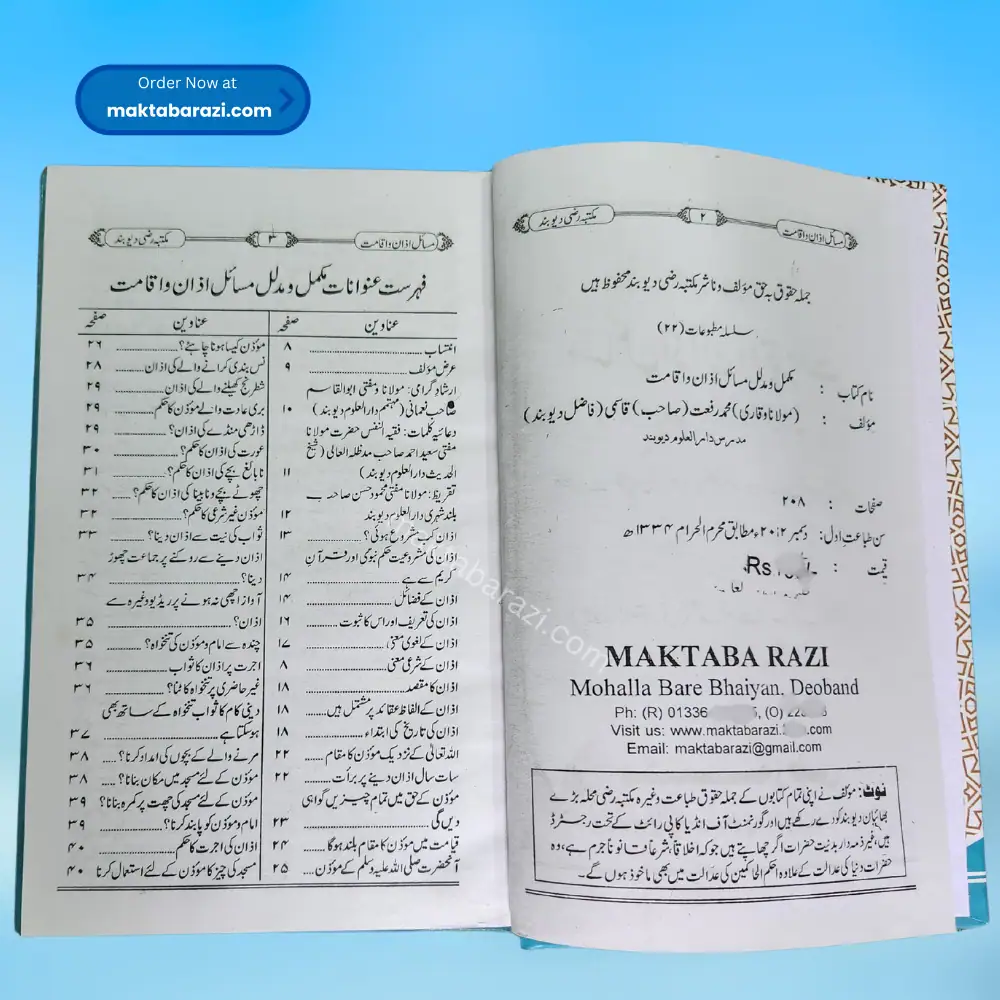 Order Now at
maktabarazi.com
مسائل اذان و اقامت
۲
مکتبہ رضی دیوبند
جملہ حقوق بہ حق مؤلف و ناشر مکتبہ رضی دیوبند محفوظ ہیں
سلسلہ مطبوعات (۲۲)
نام کتاب : مکمل و مدلل مسائل اذان و اقامت
مؤلف : (مولانا وقاری) محمد رفعت (صاحب) قاسمی (فاضل دیوبند)
مدرس دارالعلوم دیوبند
صفحات : ۲۰۸
سن طباعت اول : دسمبر ۲۰۱۲ء مطابق محرم الحرام ۱۳۳۴ھ
قیمت : Rs
MAKTABA RAZI
Mohalla Bare Bhaiyan, Deoband
Ph: (R) 01336 , (O)
Visit us: www.maktabarazi.
Email: maktabarazi@gmail.com
نوٹ: مؤلف نے اپنی تمام کتابوں کے جملہ حقوق طباعت وغیرہ مکتبہ رضی محلہ بڑے
بھائیان دیوبند کو دے رکھے ہیں اور گورنمنٹ آف انڈیا کاپی رائٹ کے تحت رجسٹرڈ
ہیں، غیر ذمہ دار بددیانت حضرات اگر چھاپتے ہیں جو کہ اخلاقا، شرعا قانونا جرم ہے، وہ
حضرات دنیا کی عدالت کے علاوہ احکم الحاکمین کی عدالت میں بھی ماخوذ ہوں گے۔
مسائل اذان و اقامت
۳
مکتبہ رضی دیوبند
فہرست عنوانات مکمل و مدلل مسائل اذان و اقامت
عناوین صفحہ
انتساب ۸
عرض مؤلف ۹
ارشاد گرامی: مولانا ومفتی ابوالقاسم
صاحب نعمانی (مہتمم دارالعلوم دیوبند) ۱۰
دعائیہ کلمات: فقیہ النفس حضرت مولانا
مفتی سعید احمد صاحب مدظلہ العالی (شیخ
الحدیث دارالعلوم دیوبند) ۱۱
تقریظ: مولانا مفتی محمود حسن صاحب
بلند شہری دارالعلوم دیوبند ۱۲
اذان کب شروع ہوئی؟ ۱۳
اذان کی مشروعیت حکم نبوی اور قرآن
کریم سے ہے ۱۴
اذان کے فضائل ۱۴
اذان کی تعریف اور اس کا ثبوت ۱۶
اذان کے لغوی معنی ۱۷
اذان کے شرعی معنی ۸
اذان کا مقصد ۱۸
اذان کے الفاظ عقائد پر مشتمل ہیں ۱۸
اذان کی تاریخ کی ابتداء ۱۸
اللہ تعالیٰ کے نزدیک مؤذن کا مقام ۲۲
سات سال اذان دینے پر برأت ۲۲
مؤذن کے حق میں تمام چیزیں گواہی
دیں گی ۲۳
قیامت میں مؤذن کا مقام بلند ہوگا ۲۴
آنحضرت صلی اللہ علیہ وسلم کے مؤذن ۲۵
عناوین صفحہ
مؤذن کیسا ہونا چاہئے؟ ۲۶
نس بندی کرانے والے کی اذان ۲۸
شطرنج کھیلنے والے کی اذان ۲۹
بری عادت والے مؤذن کا حکم ۲۹
ڈاڑھی منڈے کی اذان؟ ۲۹
عورت کی اذان کا حکم؟ ۳۰
نابالغ بچے کی اذان کا حکم؟ ۳۱
چھوٹے بچے و نابینا کی اذان کا حکم؟ ۳۲
مؤذن غیر شرعی کا حکم؟ ۳۲
ثواب کی نیت سے اذان دینا؟ ۳۳
اذان دینے سے روکنے پر جماعت چھوڑ
دینا؟ ۳۴
آواز اچھی نہ ہونے پر ریڈیو وغیرہ سے
اذان؟ ۳۵
چندہ سے امام و مؤذن کی تنخواہ؟ ۳۵
اجرت پر اذان کا ثواب ۳۶
غیر حاضری پر تنخواہ کاٹنا؟ ۳۶
دینی کام کا ثواب تنخواہ کے ساتھ بھی
ہوسکتا ہے ۳۷
مرنے والے کے بچوں کی امداد کرنا؟ ۳۸
مؤذن کے لئے مسجد میں مکان بنانا؟ ۳۸
مؤذن کے لئے مسجد کی چھت پر کمرہ بنانا؟ ۳۹
امام و مؤذن کو پابند کرنا؟ ۳۹
اذان کی اجرت کا حکم ۴۰
مسجد کی چیز کا مؤذن کے لئے استعمال کرنا ۴۰
maktabarazi.com